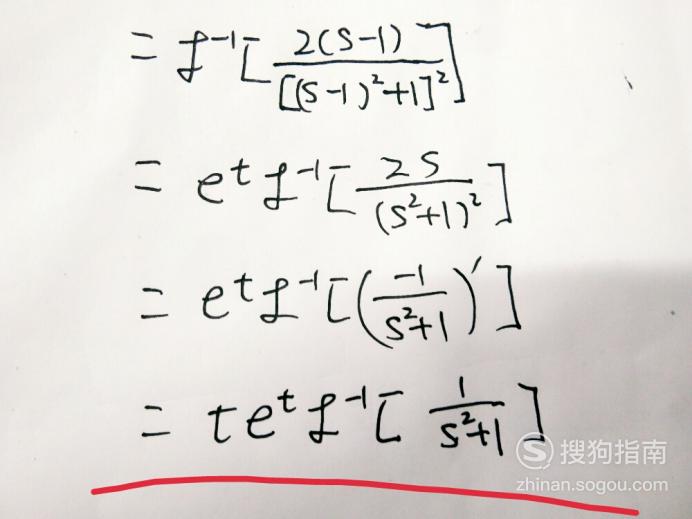 = ℒ⁻¹[2(s-1)/[(s-1)²+1]²]
= eᵗ ℒ⁻¹[2s/(s²+1)²]
= eᵗ ℒ⁻¹[(-1/(s²+1))′]
= teᵗ ℒ⁻¹[1/(s²+1)]
S 搜狗指南
zhinan.sogou.com